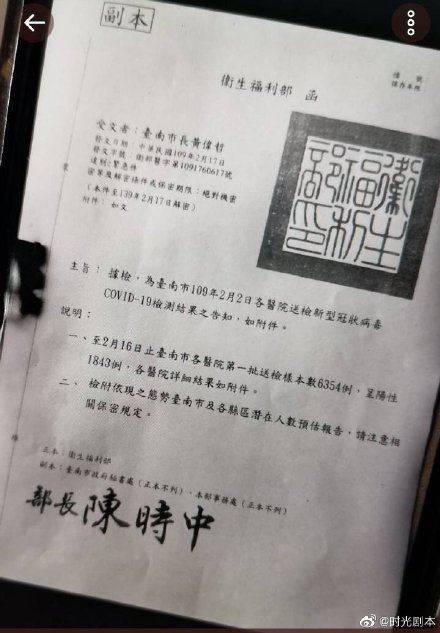 副本
檔 號
保存年限
衛生福利部 函
受文者：臺南市長黃偉哲
發文日期：中華民國109年2月17日
發文字號：衛部醫字第1091760617號
速別：緊急件
密等及解密條件或保密期限：絕對機密
（本件至139年2月17日解密）
附件：如文
衛生福利部印
主旨：據檢，為臺南市109年2月2日各醫院送檢新型冠狀病毒
COVID-19檢測結果之告知，如附件。
說明：
一、至2月16日止臺南市各醫院第一批送檢樣本數6354例，呈陽性
1843例，各醫院詳細結果如附件。
二、檢附依現之態勢臺南市及各縣區潛在人數預估報告，請注意相
關保密規定。
正本：衛生福利部
副本：臺南市政府秘書處（正本不列）、本部事務處（正本不列）
部長陳時中
@时光剧本